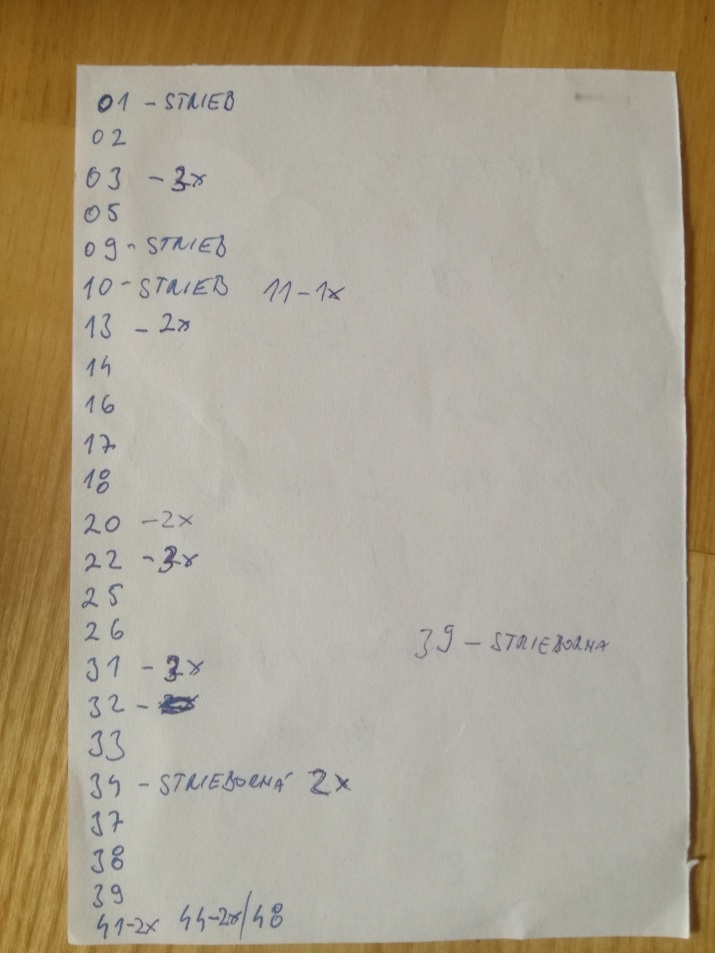 01 - STRIEB
02
03 - 3x
05
09 - STRIEB
10 - STRIEB 11 - 1x
13 - 2x
14
16
17
18
20 - 2x
22 - 3x
25
26
39 - STRIEBORNA
31 - 3x
32 -
33
34 - STRIEBORNÁ 2x
37
38
39
41-2x 44-2x/48